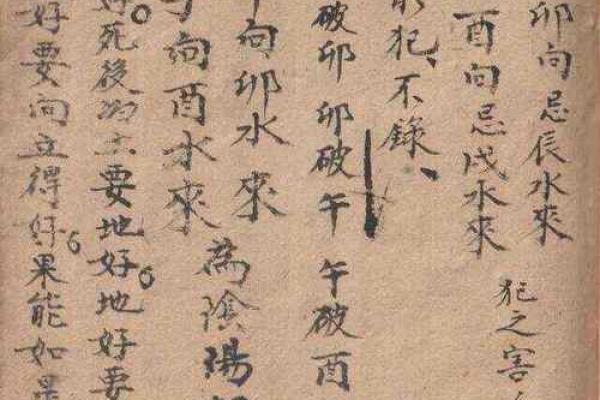 卯向忌辰水來
酉向忌戌水來
犯之害
犯、不錄、
破卯卯破午 午破酉
向卯水來
向酉水來
為陰陽
好死後 要地好地好要
好要向立得好果能如果